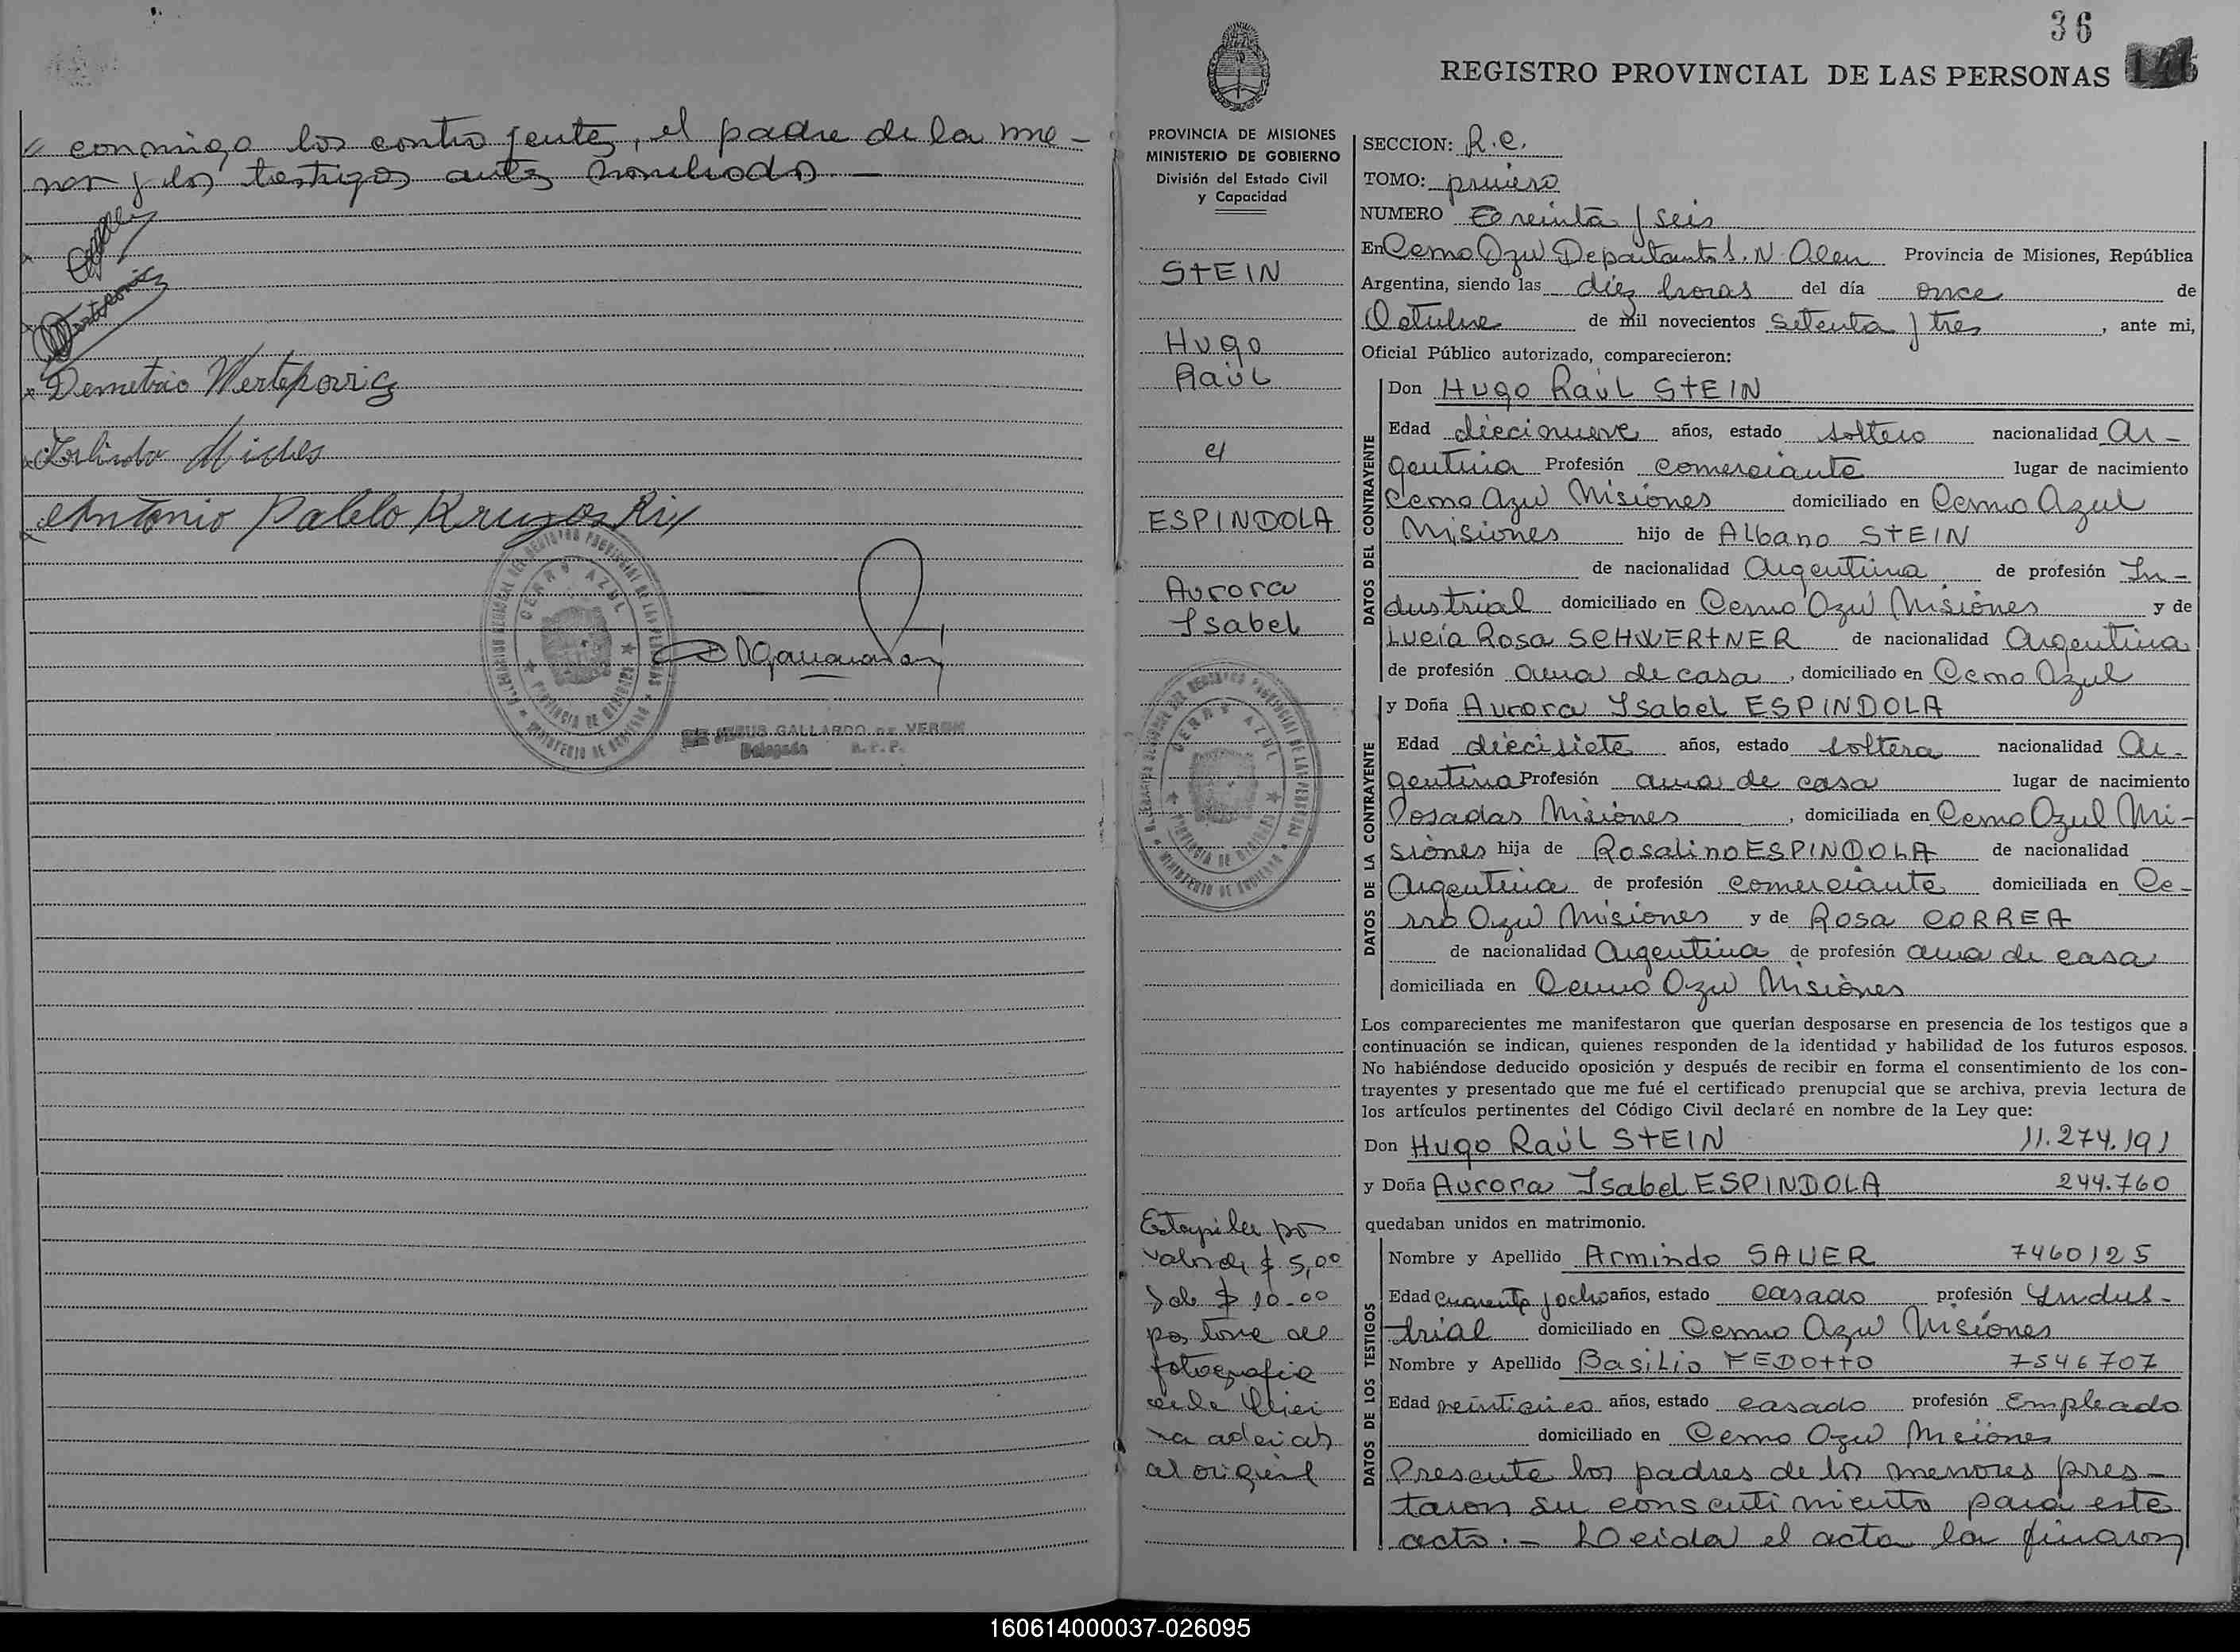 conmigo los contrayentes, el padre de la me-
nor y los testigos antes nombrados. —
Demetrio Wertepovicz
Antonio Pablo
CERRO AZUL
PROVINCIA DE MISIONES
JESUS GALLARDO DE VERON
Delegada R.P.P.
36
REGISTRO PROVINCIAL DE LAS PERSONAS
PROVINCIA DE MISIONES
MINISTERIO DE GOBIERNO
División del Estado Civil
y Capacidad
STEIN
Hugo
Raúl
c/
ESPINDOLA
Aurora
Isabel
CERRO AZUL
PROVINCIA DE MISIONES
Estapilla por
valor de $ 5,00
y de $ 10.00
al original
SECCION: R.C.
TOMO: primero
NUMERO treinta y seis
En Cerro Azul Departamento L. N. Alem Provincia de Misiones, República
Argentina, siendo las diez horas del día once de
Octubre de mil novecientos setenta y tres, ante mi,
Oficial Público autorizado, comparecieron:
DATOS DEL CONTRAYENTE
Don Hugo Raúl STEIN
Edad diecinueve años, estado soltero nacionalidad Ar-
gentina Profesión comerciante lugar de nacimiento
Cerro Azul Misiones domiciliado en Cerro Azul
Misiones hijo de Albano STEIN
de nacionalidad Argentina de profesión In-
dustrial domiciliado en Cerro Azul Misiones y de
Lucía Rosa SCHWERTNER de nacionalidad Argentina
de profesión ama de casa, domiciliado en Cerro Azul
DATOS DE LA CONTRAYENTE
y Doña Aurora Isabel ESPINDOLA
Edad diecisiete años, estado soltera nacionalidad Ar-
gentina Profesión ama de casa lugar de nacimiento
Posadas Misiones, domiciliada en Cerro Azul Mi-
siones hija de Rosalino ESPINDOLA de nacionalidad
Argentina de profesión comerciante domiciliada en Ce-
rro Azul Misiones y de Rosa CORREA
de nacionalidad Argentina de profesión ama de casa
domiciliada en Cerro Azul Misiones
Los comparecientes me manifestaron que querían desposarse en presencia de los testigos que a
continuación se indican, quienes responden de la identidad y habilidad de los futuros esposos.
No habiéndose deducido oposición y después de recibir en forma el consentimiento de los con-
trayentes y presentado que me fué el certificado prenupcial que se archiva, previa lectura de
los artículos pertinentes del Código Civil declaré en nombre de la Ley que:
Don Hugo Raúl STEIN 11.274.191
y Doña Aurora Isabel ESPINDOLA 244.760
quedaban unidos en matrimonio.
DATOS DE LOS TESTIGOS
Nombre y Apellido Armindo SAUER 7460125
Edad cuarenta y ocho años, estado casado profesión Indus-
trial domiciliado en Cerro Azul Misiones
Nombre y Apellido Basilio FEDOTTO 7546707
Edad veinticinco años, estado casado profesión Empleado
domiciliado en Cerro Azul Misiones
Presente los padres de los menores pres-
taron su consentimiento para este
acto.- Leida el acta la firmaron
160614000037-026095